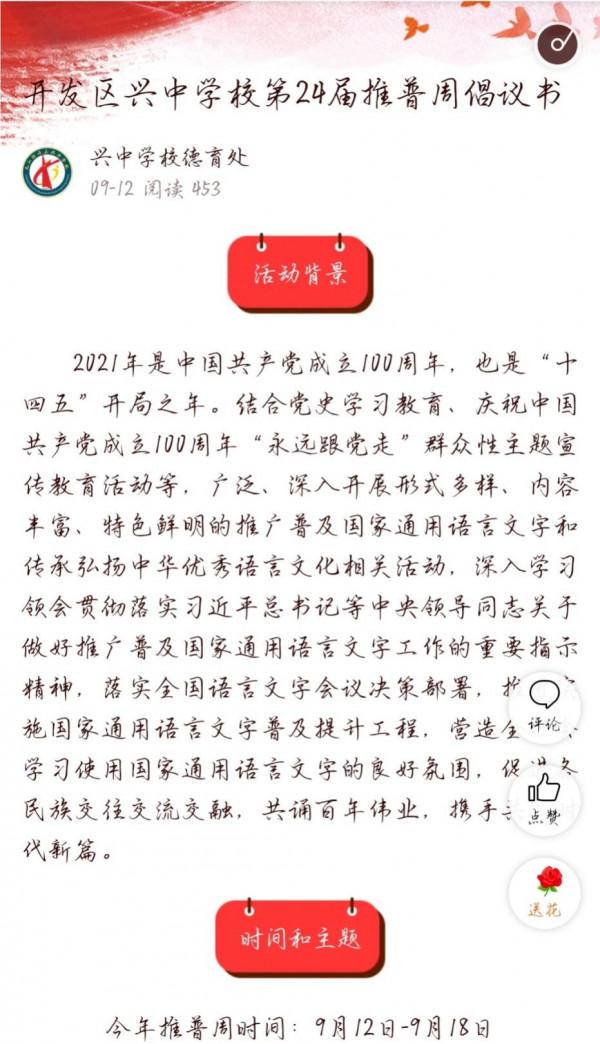 开发区兴中学校第24届推普周倡议书
兴中学校德育处
09-12 阅读 453
活动背景
2021年是中国共产党成立100周年，也是“十
四五”开局之年。结合党史学习教育、庆祝中国
共产党成立100周年“永远跟党走”群众性主题宣
传教育活动等，广泛、深入开展形式多样、内容
丰富、特色鲜明的推广普及国家通用语言文字和
传承弘扬中华优秀语言文化相关活动，深入学习
领会贯彻落实习近平总书记等中央领导同志关于
做好推广普及国家通用语言文字工作的重要指示
精神，落实全国语言文字会议决策部署，
施国家通用语言文字普及提升工程，营造全
学习使用国家通用语言文字的良好氛围，促进各
民族交往交流交融，共诵百年伟业，携手 时
代新篇。
评论
点赞
送花
时间和主题
今年推普周时间：9月12日-9月18日